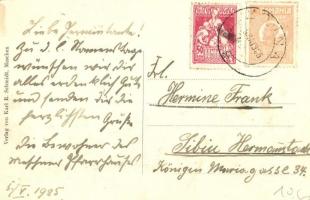 Liebe Hermintante!
Zu d. l. Namenstage
wünschen wir dir
alles erdenklich Gute
und senden dir die
herzlichsten Grüße
die Bewohner des
Pfarrhauses
5/V. 1925
Verlag von Karl R. Schmidt,
Frl.
Hermine Frank
Sibiu Hermannstadt
Königin Mariagasse 34
ROMANIA